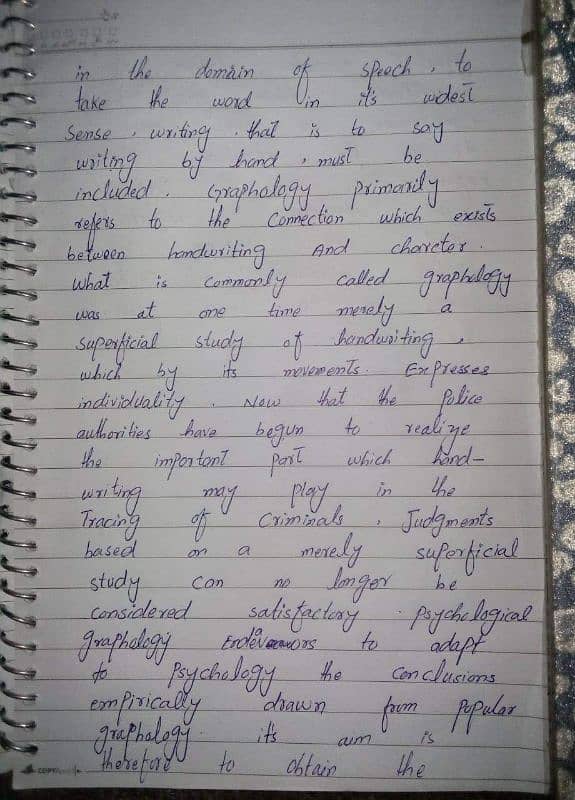 in the domain of speech, to
take the word in it's widest
Sense, writing. that is to say
writing by hand, must be
included. Graphology primarily
refers to the Connection which exists
between handwriting And charcter.
what is Commonly called graphology
was at one time merely a
superficial study of handwriting,
which by its movements. Expresses
individuality. Now that the Police
authorities have begun to realize
the important part which hand-
writing may play in the
Tracing of Criminals, Judgments
based on a merely superficial
study can no longer be
Considered satisfactory. psychological
graphology to adapt
to Psychology the Conclusions
empirically drawn from Popular
graphology. it's aum is
therefore to obtain the